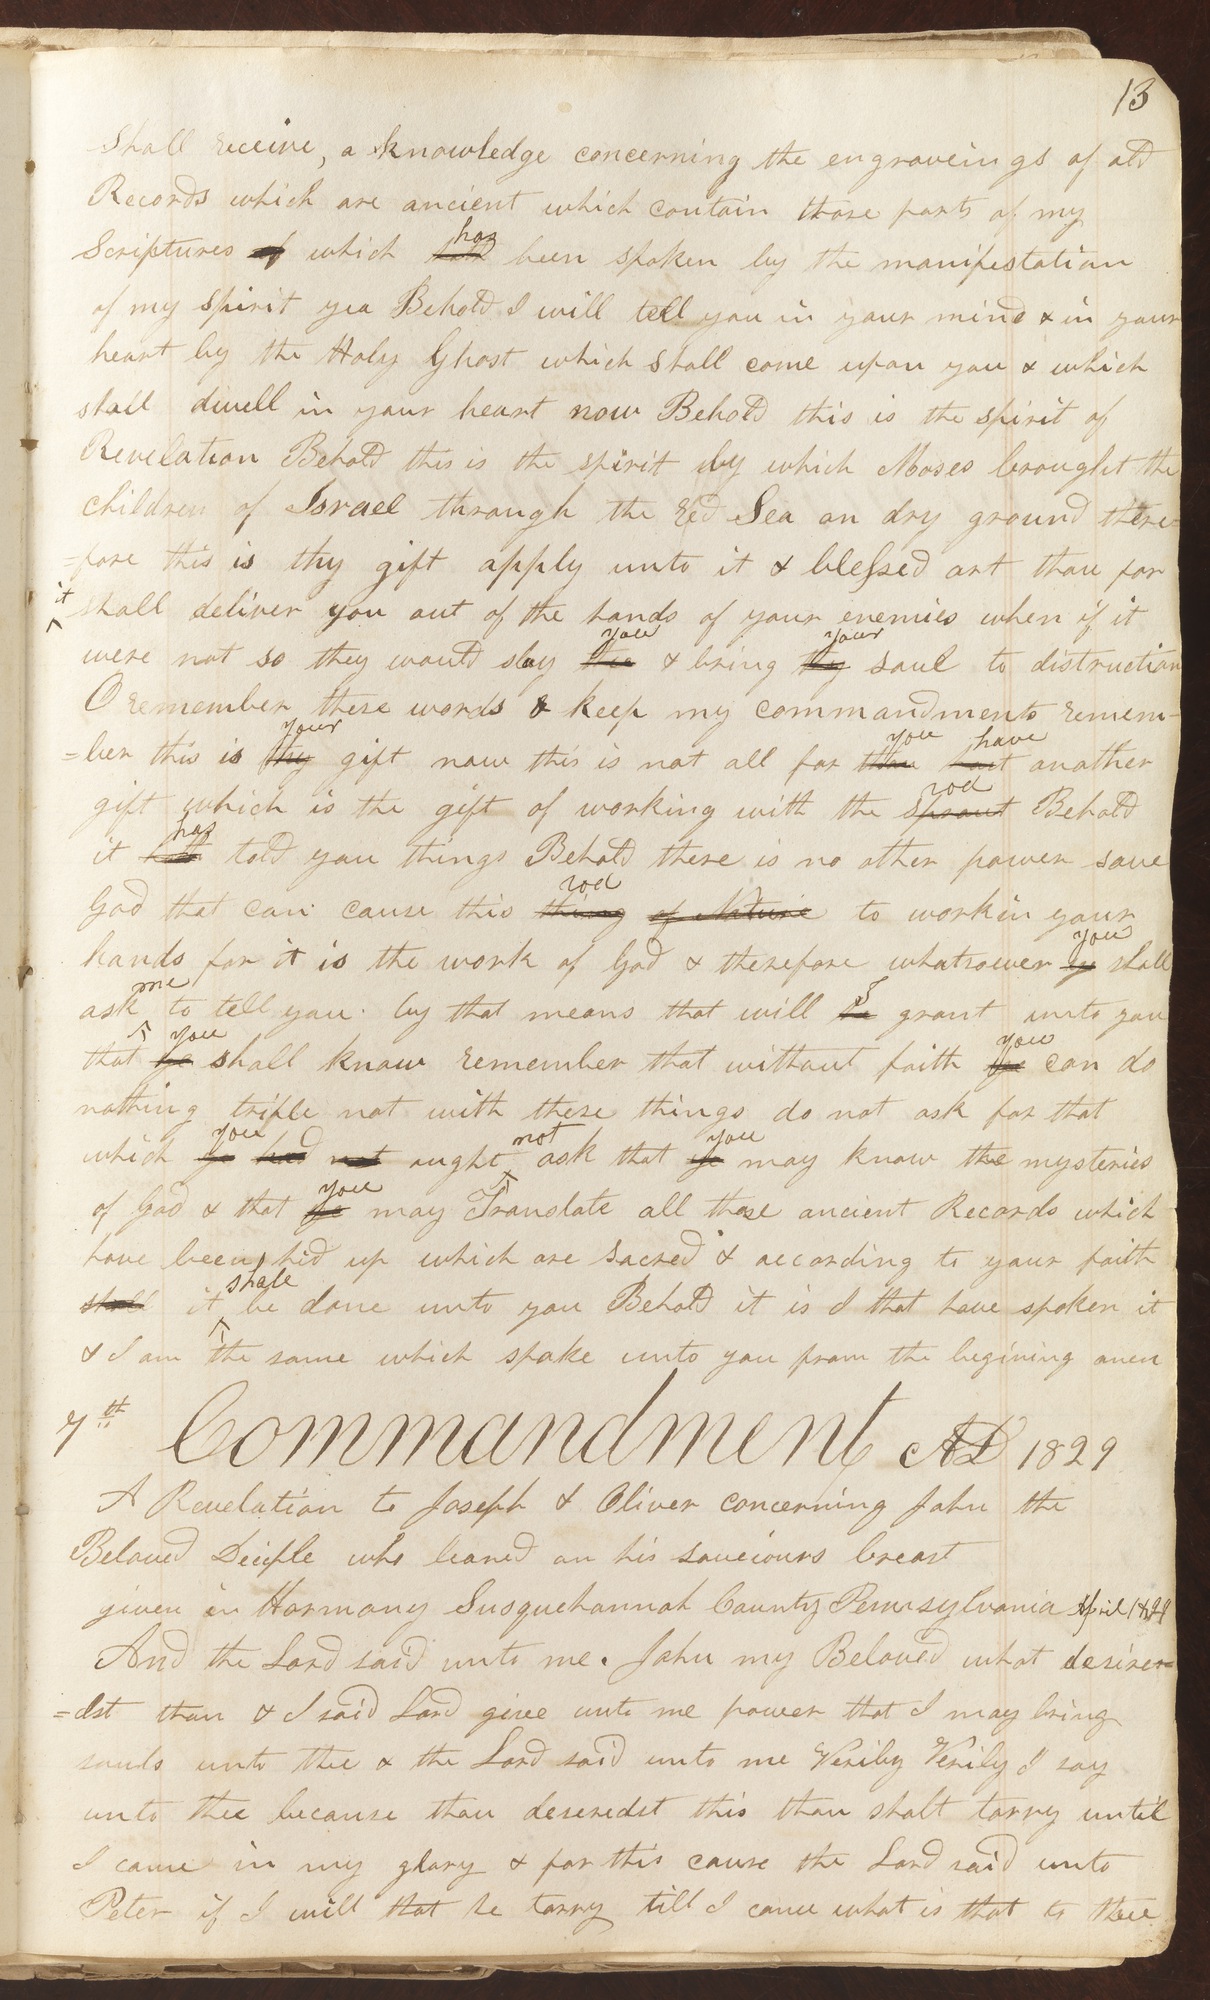 13
shall receive, a knowledge concerning the engraveings of old
Records which are ancient which contain those parts of my
Scriptures of which hath has been spoken by the manifestation
of my spirit yea Behold I will tell you in your mind & in your
heart by the Holy Ghost which shall come upon you & which
shall dwell in your heart now Behold this is the spirit of
Revelation Behold this is the spirit by which Moses brought the
children of Israel through the red Sea on dry ground there=
=fore this is thy gift apply unto it & blessed art thou for
it shall deliver you out of the hands of your enemies when if it
were not so they would slay thee you & bring thy your soul to distruction
O remember these words & keep my commandments remem-
=ber this is thy your gift now this is not all for thou you hast have another
gift which is the gift of working with the sprout rod Behold
it hath has told you things Behold there is no other power save
God that can cause this thing rod of Nature to work in your
hands for it is the work of God & therefore whatsoever ye you shall
ask me to tell you by that means that will he I grant unto you
that ye you shall know remember that without faith ye you can do
nothing trifle not with these things do not ask for that
which ye you had not ought not ask that ye you may know the mysteries
of God & that ye you may Translate all those ancient Records which
have been hid up which are Sacred & according to your faith
shall it shall be done unto you Behold it is I that have spoken it
& I am the same which spake unto you from the begining amen
7th Commandment AD 1829
A Revelation to Joseph & Oliver concerning John the
Beloved Deciple who leaned on his saveiours breast
given in Harmony Susquehannah County Pennsylvania April 1829
And the Lord said unto me. John my Beloved what desires=
=dst thou & I said Lord give unto me power that I may bring
souls unto thee & the Lord said unto me Verily Verily I say
unto thee because thou deseredst this thou shalt tarry until
I come in my glory & for this cause the Lord said unto
Peter if I will that he tarry till I come what is that to thee